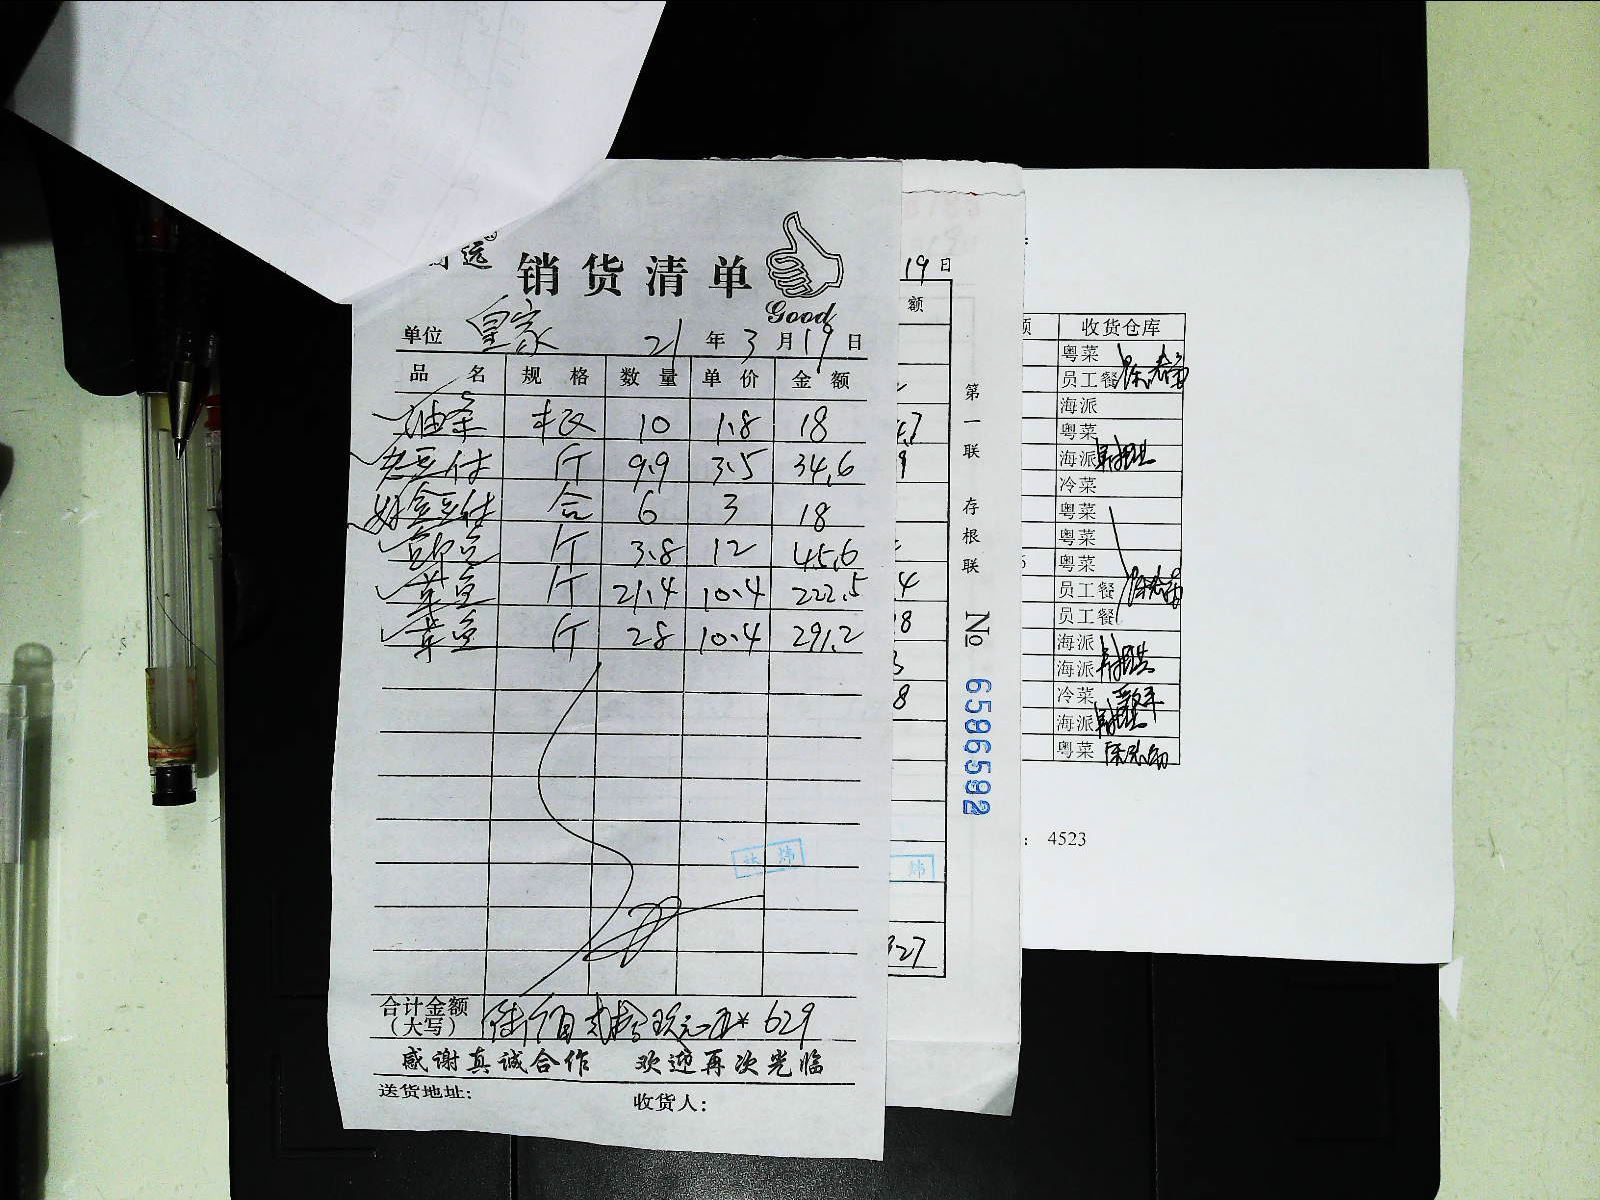 远
销货清单
Good
单位 皇家 21 年 3 月 19 日
品名 规格 数量 单价 金额
油条 根 10 1.8 18
老豆付 斤 9.9 3.5 34.6
盒豆付 合 6 3 18
斤 3.8 12 45.6
草鱼 斤 21.4 10.4 222.5
草鱼 斤 28 10.4 291.2
合计金额
(大写) 陆佰贰拾玖元 ¥ 629
感谢真诚合作 欢迎再次光临
送货地址:
收货人:
19 日
额
327
第一联 存根联 No 6586592
额 收货仓库
粤菜
员工餐
海派
粤菜
海派
冷菜
粤菜
粤菜
粤菜
员工餐
员工餐
海派
海派
冷菜
海派
粤菜
: 4523